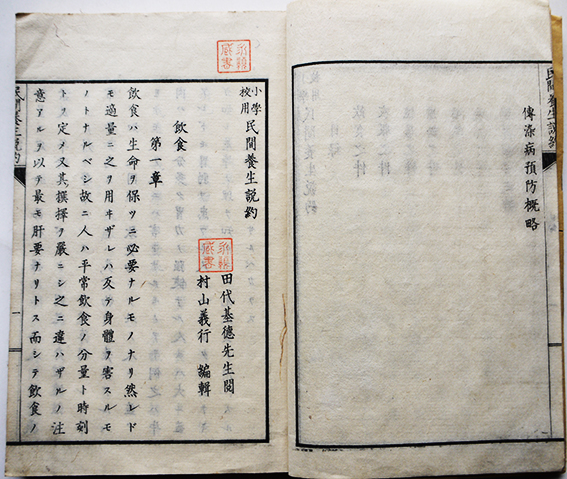 民間養生説約
傳染病預防概略
小學校用 民間養生説約
田代基德先生閲
村山義行編輯
飲食
第一章
飲食ハ生命ヲ保ツニ必要ナルモノナリ然レド
モ適量ニ之ヲ用ヰザレハ反テ身體ヲ害スルモ
ノトナルベシ故ニ人ハ平常飲食ノ分量ト時刻
トヲ定メ又其撰擇ヲ嚴ニシ之ニ違ハザルノ注
意アルヲ以テ最モ肝要ナリトス而シテ飲食ノ
民間養生説約